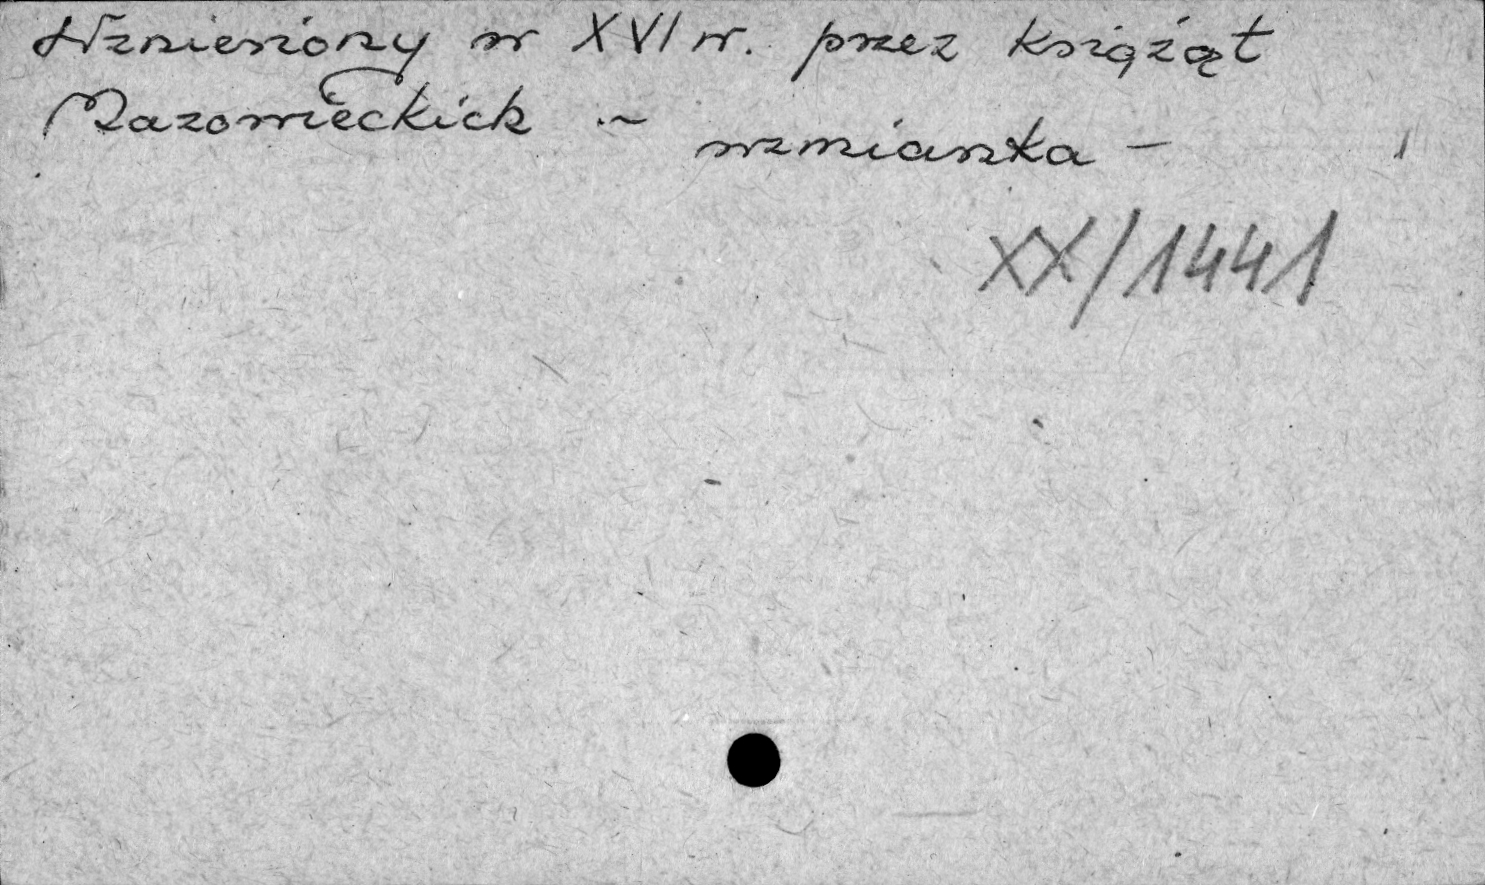 Wzniesiony w XVI w. przez książąt
Mazowieckich -
wzmianka -
XX/1441